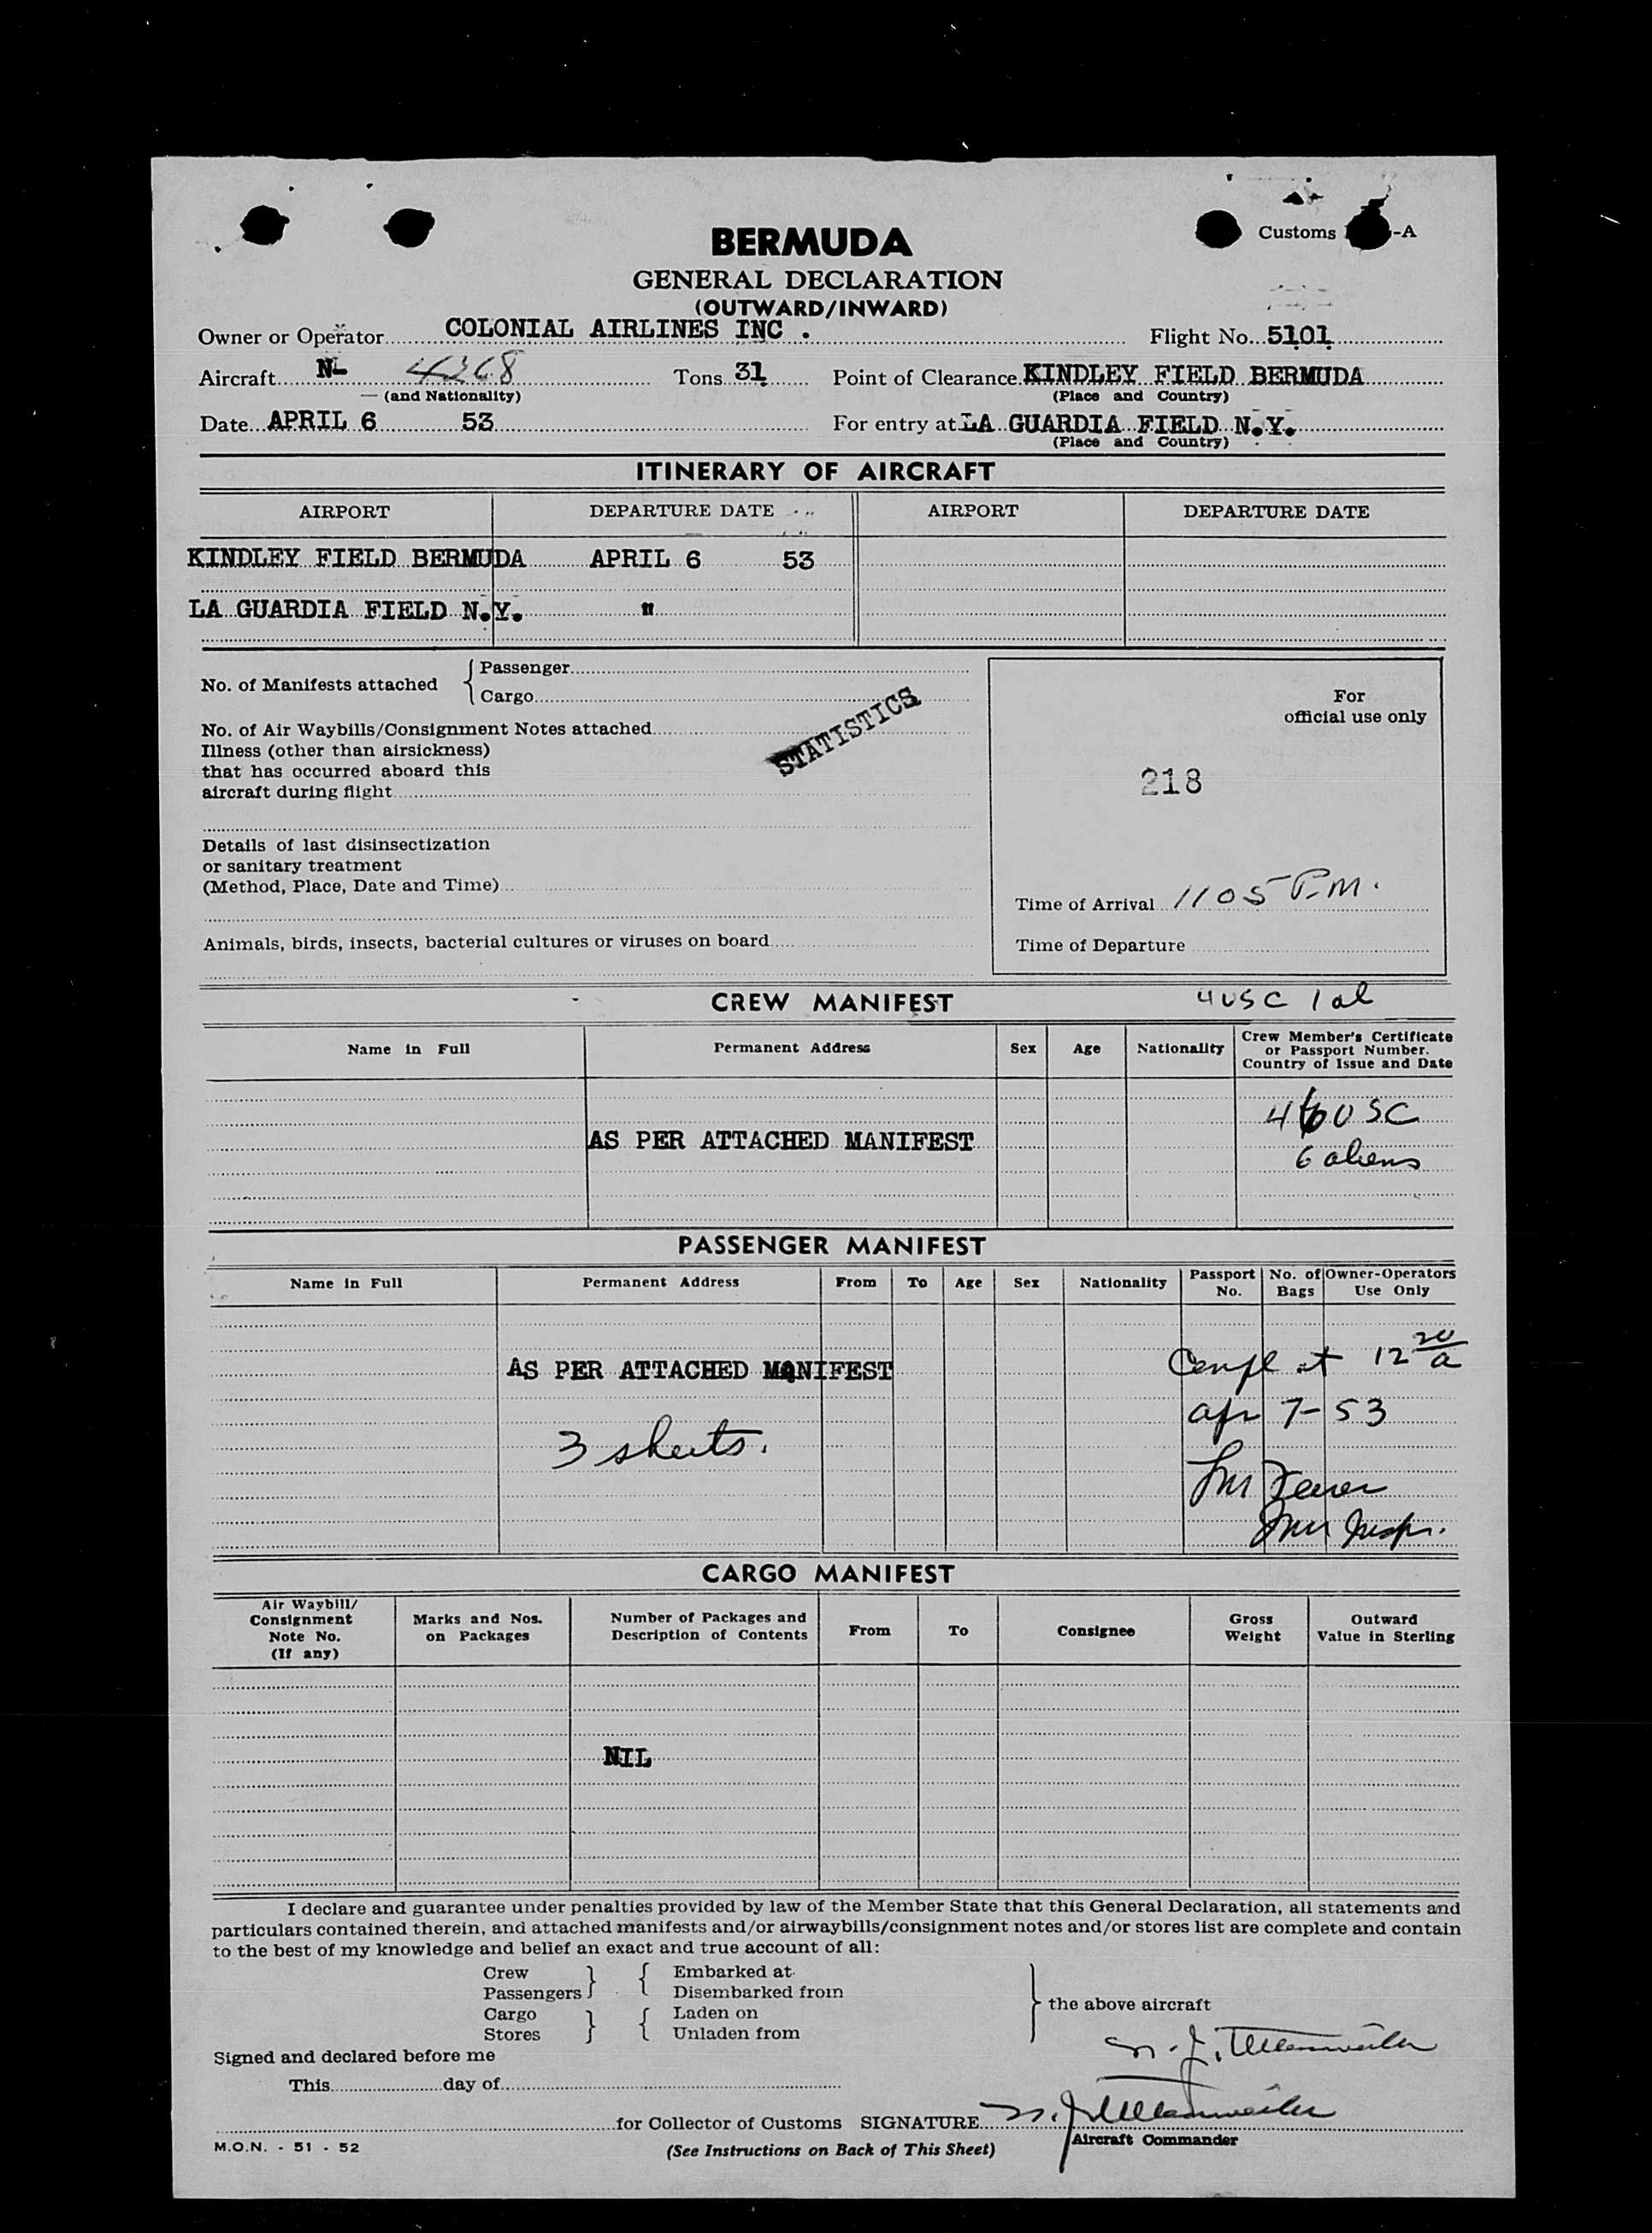 Customs -A
BERMUDA
GENERAL DECLARATION
(OUTWARD/INWARD)
Owner or Operator COLONIAL AIRLINES INC . Flight No. 5101
Aircraft N 4268 Tons 31 Point of Clearance KINDLEY FIELD BERMUDA
(and Nationality) (Place and Country)
Date APRIL 6 53 For entry at LA GUARDIA FIELD N.Y.
(Place and Country)
ITINERARY OF AIRCRAFT
AIRPORT DEPARTURE DATE AIRPORT DEPARTURE DATE
KINDLEY FIELD BERMUDA APRIL 6 53
LA GUARDIA FIELD N.Y. "
No. of Manifests attached { Passenger
Cargo
For
official use only
No. of Air Waybills/Consignment Notes attached
STATISTICS
Illness (other than airsickness)
that has occurred aboard this
aircraft during flight
218
Details of last disinsectization
or sanitary treatment
(Method, Place, Date and Time)
Time of Arrival 1105 P.M.
Animals, birds, insects, bacterial cultures or viruses on board
Time of Departure
CREW MANIFEST 4 USC 1 al
Name in Full Permanent Address Sex Age Nationality Crew Member's Certificate
or Passport Number.
Country of Issue and Date
USC
AS PER ATTACHED MANIFEST
6 aliens
PASSENGER MANIFEST
Name in Full Permanent Address From To Age Sex Nationality Passport No. No. of Bags Owner-Operators Use Only
AS PER ATTACHED MANIFEST
Compl at 12 20 a
apr 7-53
3 sheets.
Imm Inspr.
CARGO MANIFEST
Air Waybill/ Consignment Note No. (If any) Marks and Nos. on Packages Number of Packages and Description of Contents From To Consignee Gross Weight Outward Value in Sterling
NIL
I declare and guarantee under penalties provided by law of the Member State that this General Declaration, all statements and
particulars contained therein, and attached manifests and/or airwaybills/consignment notes and/or stores list are complete and contain
to the best of my knowledge and belief an exact and true account of all:
Crew } { Embarked at
Passengers } { Disembarked from
Cargo } { Laden on
Stores } { Unladen from
} the above aircraft
Signed and declared before me
This day of
for Collector of Customs SIGNATURE
Aircraft Commander
M.O.N. - 51 - 52 (See Instructions on Back of This Sheet)